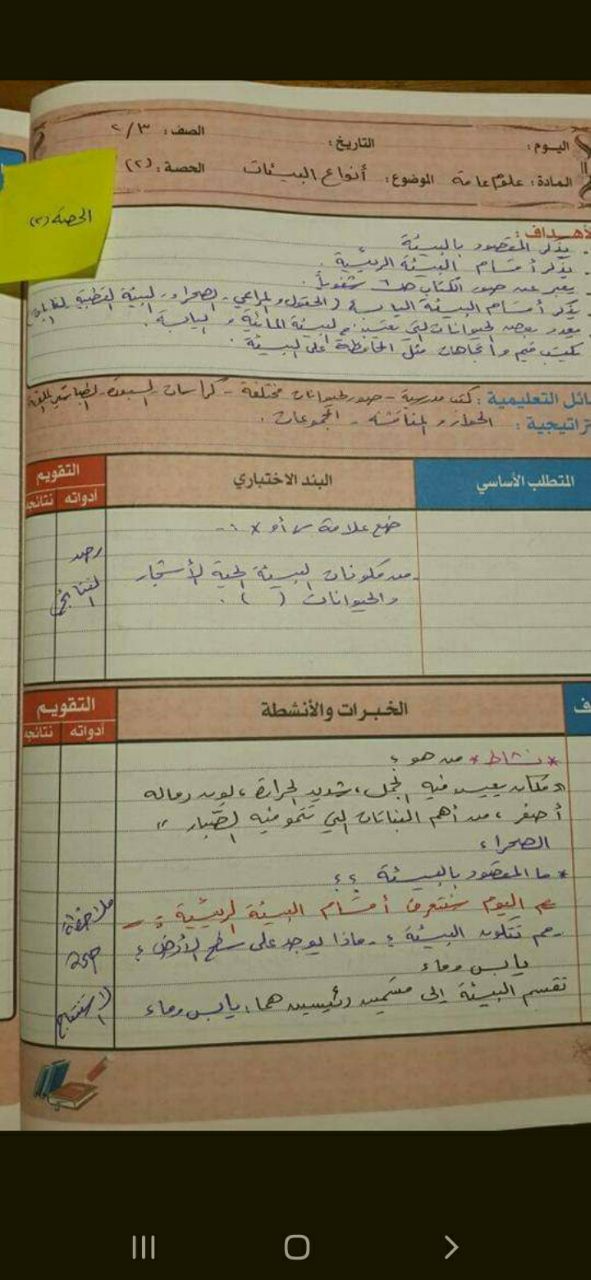 اليوم: التاريخ: الصف: ٢/٣
المادة: علوم عامة الموضوع: أنواع البيئات الحصة: (٢)
الحصة (٢)
لأهداف:
. يذكر المقصود بالبيئة
. يذكر أقسام البيئة الرئيسية.
. يعبر عن صور الكتاب ص٦ شفوياً.
. يذكر أقسام البيئة اليابسة (الحقول والمراعي - الصحراء - البيئة القطبية - الغابات)
. يعدد بعض الحيوانات التي تعيش في البيئة المائية و اليابسة.
. يكتسب قيم واتجاهات مثل المحافظة على البيئة.
ائل التعليمية: كتب مدرسية - صور لحيوانات مختلفة - كراسات - السبورة - الطباشير الملونة
تراتيجية: الحوار والمناقشة - المجموعات.
المتطلب الأساسي البند الاختباري التقويم
أدواته نتائجه
ضع علامة √ أو × :-
- من مكونات البيئة الحية الأشجار
والحيوانات ( ).
رصد
النتائج
ف الخبرات والأنشطة التقويم
أدواته نتائجه
* نشاط * من هو؟
" مكان يعيش فيه الجمل، شديد الحرارة، لون رماله
أصفر، من أهم النباتات التي تنمو فيه الصبار "
الصحراء
* ما المقصود بالبيئة ؟؟
اليوم سنتعرف أقسام البيئة الرئيسية :-
- مم تتكون البيئة ؟ - ماذا يوجد على سطح الأرض ؟
يابس وماء
تقسم البيئة إلى قسمين رئيسين هما: يابس وماء
ملاحظة
الاستنتاج